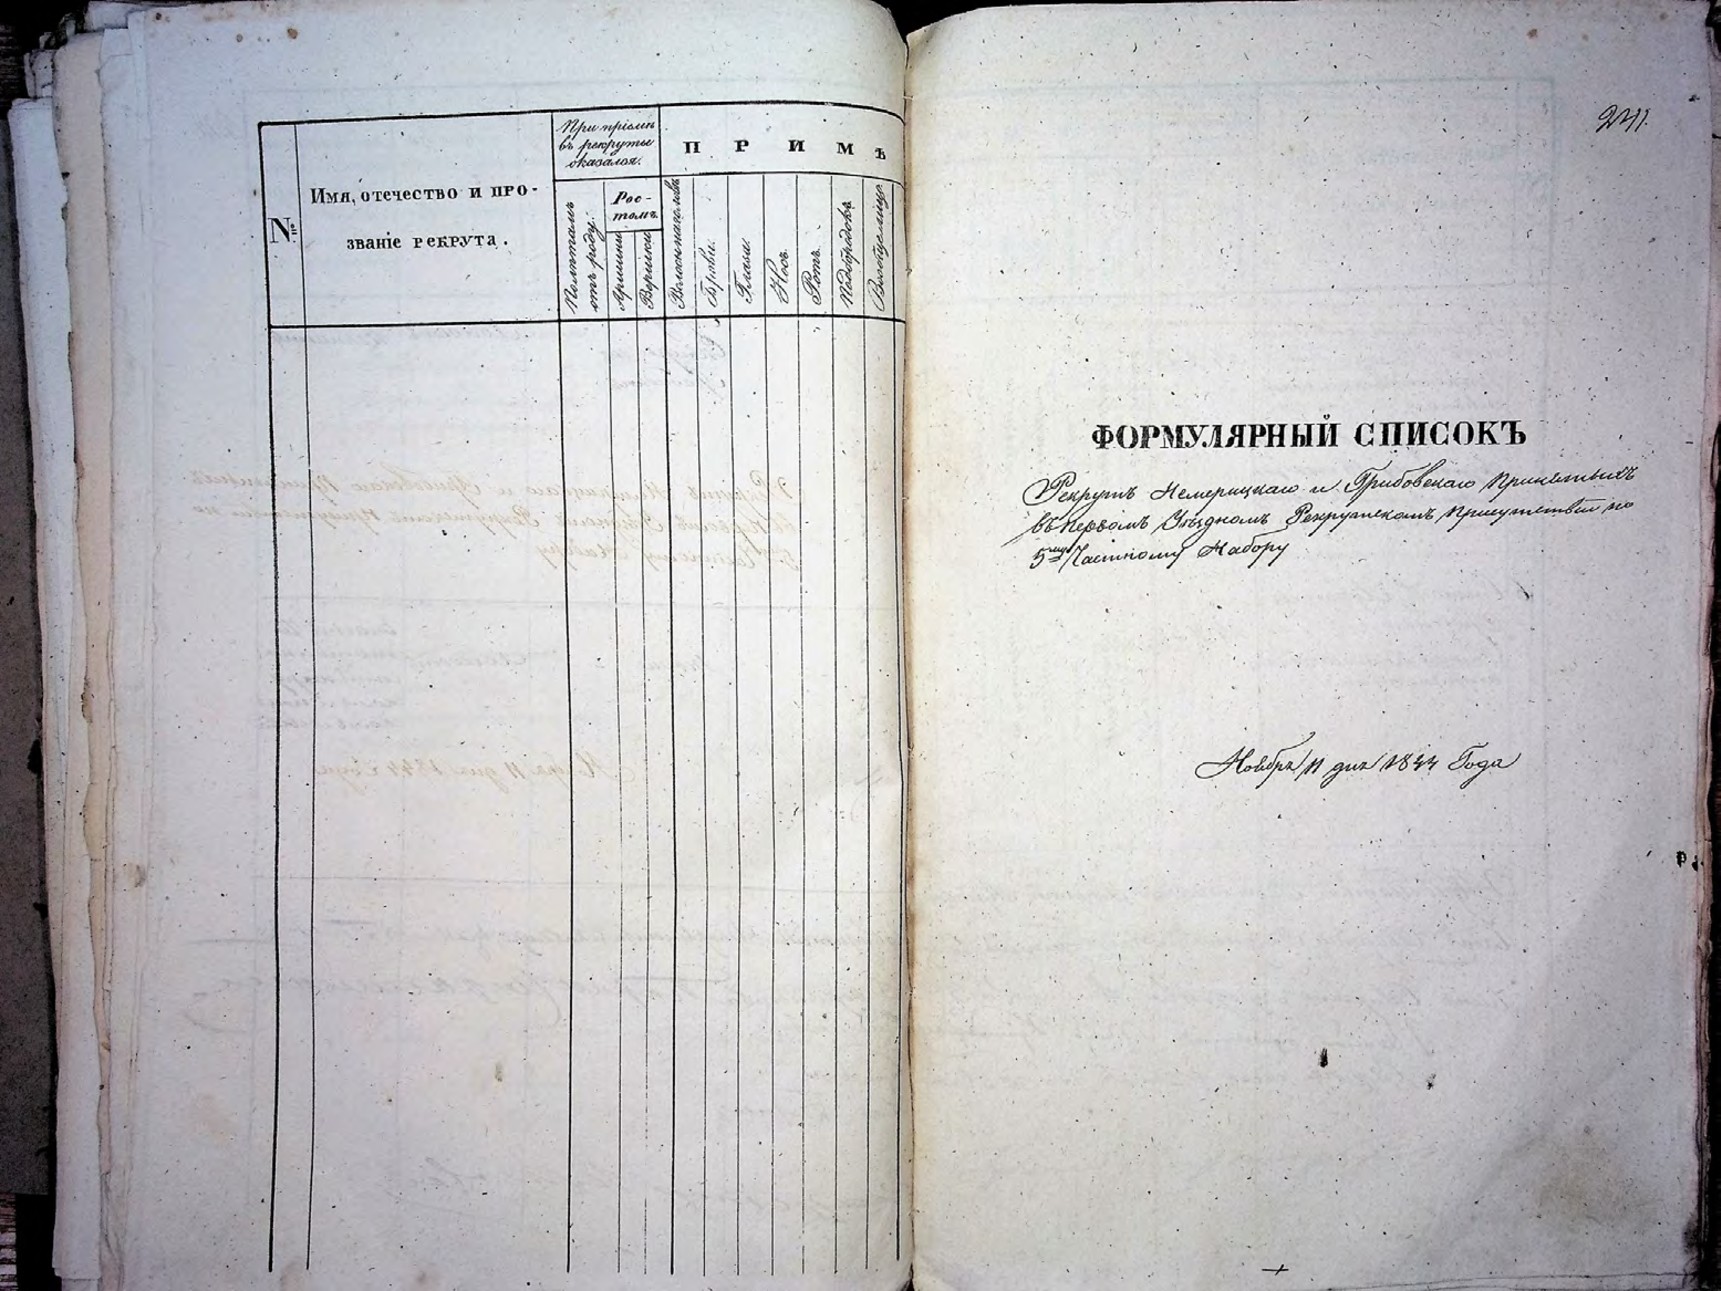 №
Имя, отечество и про-
званіе рекрута.
При пріемѣ
въ рекруты
оказался.
Полѣтамъ
отъ роду.
Рос-
томъ.
Аршины
Вершки
П Р И М Ѣ
Волосы на головѣ
Брови.
Глаза.
Носъ.
Ротъ.
Подбородокъ.
Вообще лице.
241.
ФОРМУЛЯРНЫЙ СПИСОКЪ
Рекрутъ Немерицкаго и Грибовскаго принятыхъ
въ первомъ Уѣздномъ Рекрутскомъ присутствіи по
5му Частному Набору
Ноября 11 дня 1844 Года